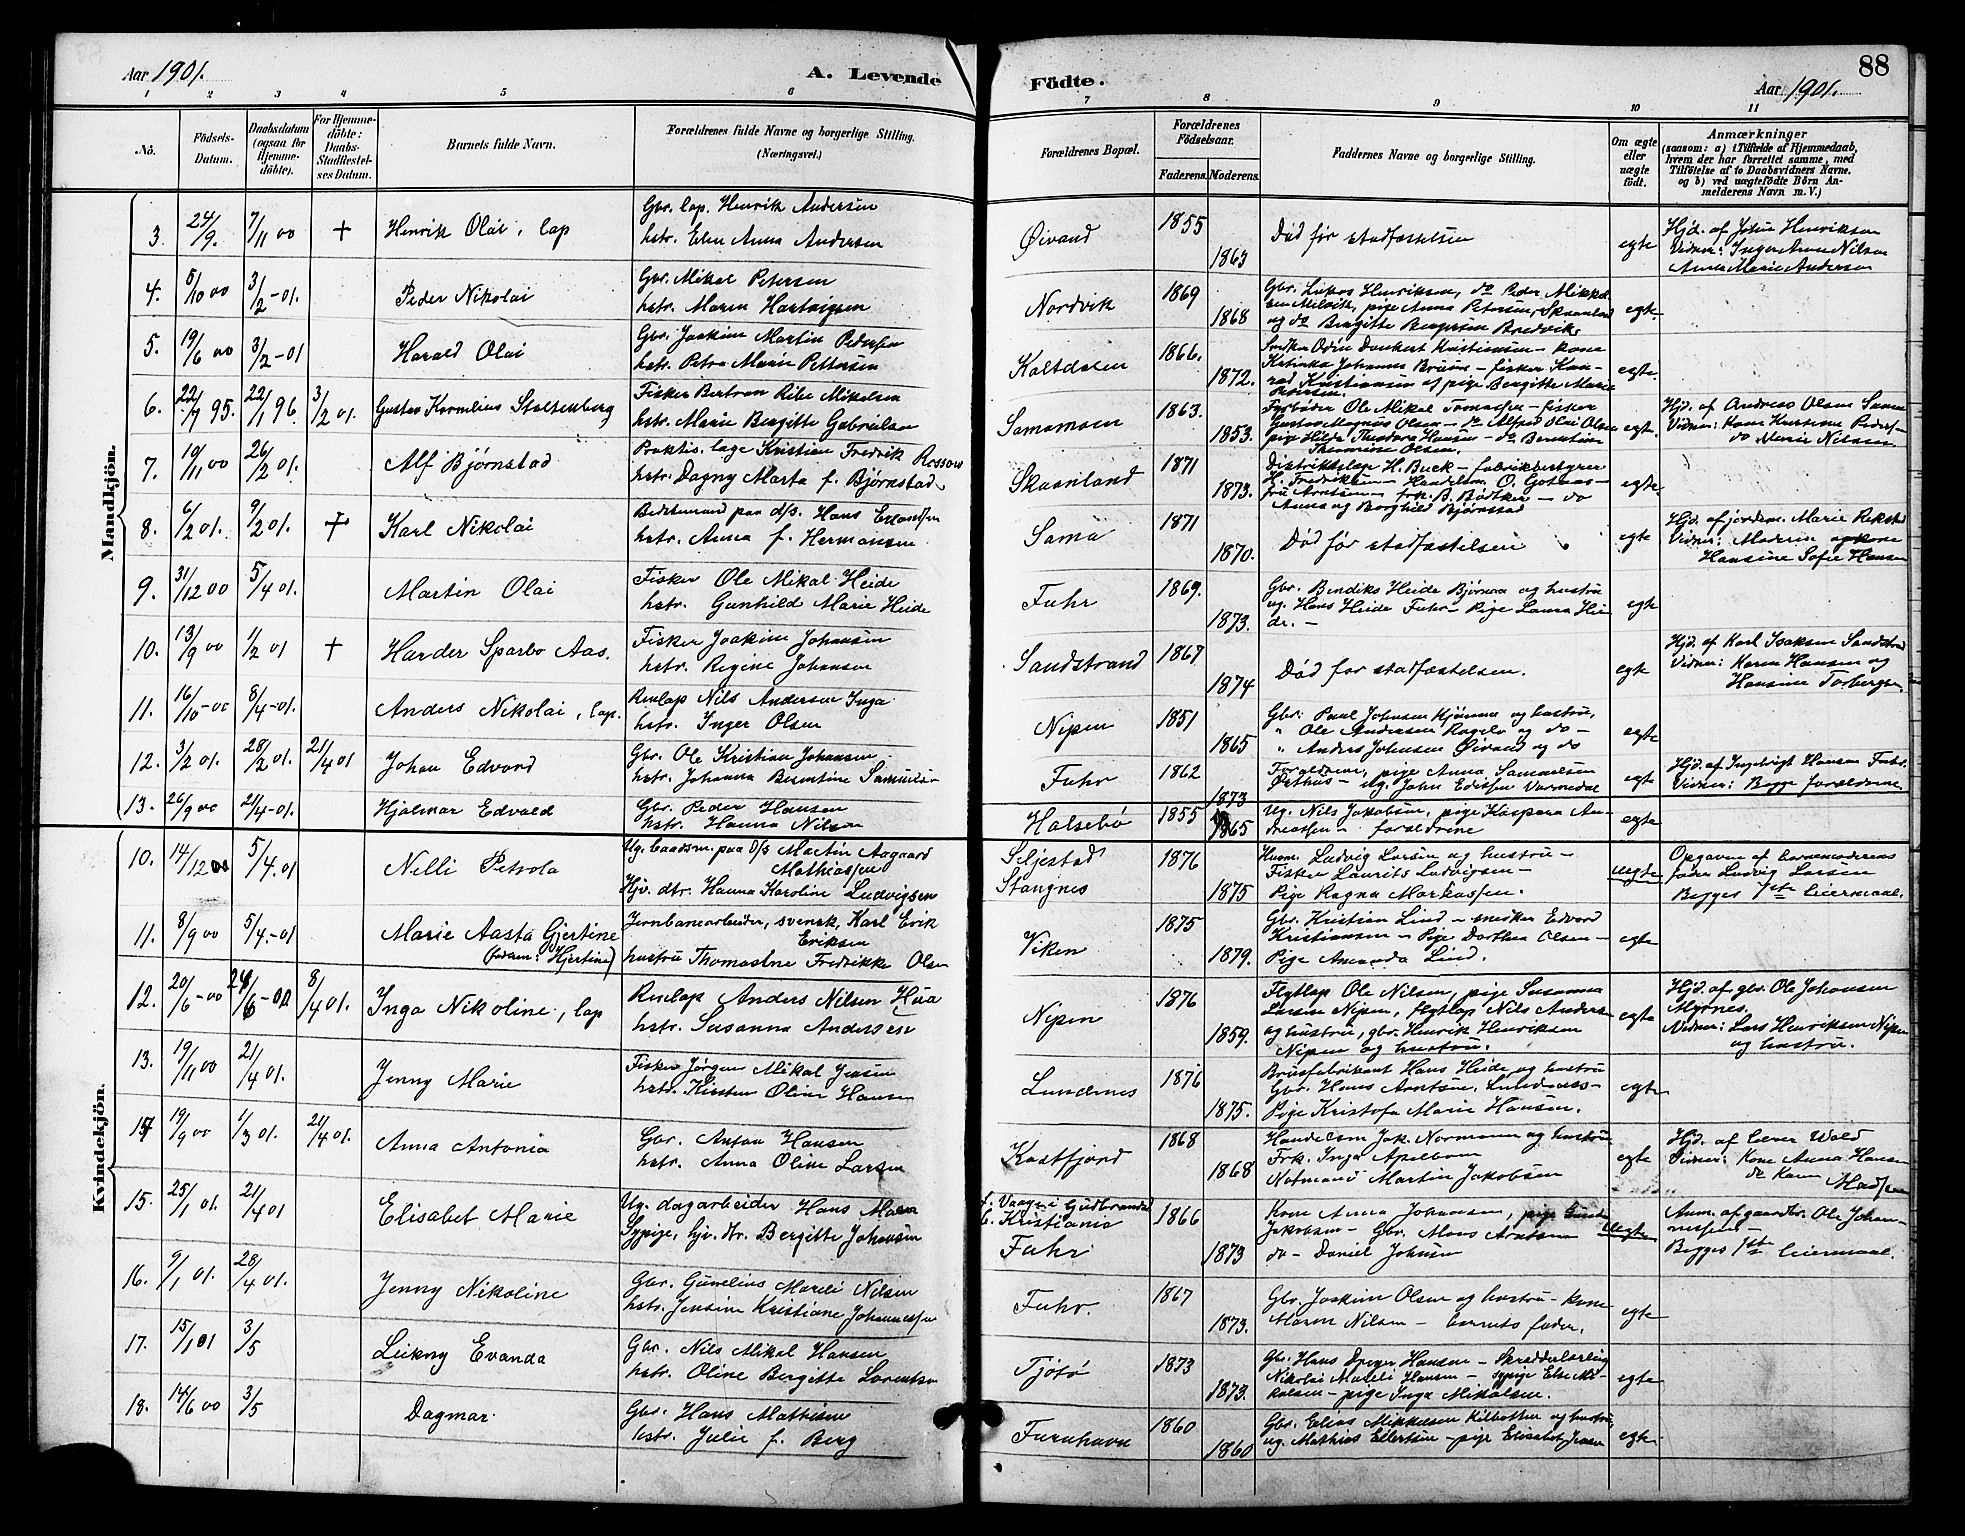 88
Aar 1901.
A. Levende
Födte.
Aar 1901.
1 2 3 4 5 6 7 8 9 10 11
No.
Födsels-Datum.
Daabsdatum (ogsaa for Hjemme-döbte).
For Hjemme-döbte: Daabs-Stadfæstel-ses Datum.
Barnets fulde Navn.
Forældrenes fulde Navne og borgerlige Stilling.
(Næringsvei.)
Forældrenes Bopæl.
Forældrenes Födselsaar.
Faderens. Moderens.
Faddernes Navne og borgerlige Stilling.
Om ægte eller uægte födt.
Anmærkninger
(saasom: a) i Tilfælde af Hjemmedaab,
hvem der har forrettet samme, med
Tilföielse af to Daabsvidners Navne,
og b) ved uægtefödte Börn An-
melderens Navn m. V.)
Mandkjön.
3. 24/9. 7/11 00 + Henrik Olai, lap
Gbr. lap. Henrik Andersen
hstr. Elen Anna Andersen
Øivand 1855 1863
Død før stadfæstelsen
egte
Hjd. af Johan Henriksen
Vidner: Inger Anna Nilsen
Anna Marie Andersen
4. 5/10 00 3/2-01. Peder Nikolai
Gbr. Mikal Petersen
hstr. Maren Hartvigsen
Nordvik 1869 1868
Gbr. Lukas Henriksen, do Peder Mikkel-
sen Melvik, pige Anna Petersen, Skaanland
og do Bergitte Bergersen Bredvik.
egte.
5. 19/6 00 3/2-01 Harald Olai
Gbr. Joakim Martin Pedersen
hstr. Petra Marie Pettersen
Kaltdalen 1866. 1872.
Odin Dankert Kristiansen - kone
Katinka Johannes Bruun - fisker Kon-
rad Kristiansen og pige Bergitte Marie
egte.
6. 22/7 95. 22/1 96. 3/2 01. Gustav Kornelius Stoltenberg
Fisker Bertran Ribe Mikalsen
hstr. Marie Bergitte Gabrielsen
Samamoen 1863. 1853.
Fyrbøder Ole Mikal Tomassen - fisker
Gustav Magnus Olsen - do Alfred Olai Olsen
pige Hilda Theodora Hansen - do Berntine
Thomine Olsen.
egte.
Hjd. af Andreas Olsen Sama
Vidner: Kone
do Marie Nilsen
7. 19/11 00 26/2 01. Alf Bjørnstad
Praktis. læge Kristian Fredrik Rossow
hstr. Dagny Marta f. Bjørnstad
Skaanland 1871 1873.
Distriktslæge H. Buck - fabrikbestyrer
H. Fredriksen - Handelsm. O. Gotaas-
fru Arntsen - frk. B. Bødtker - do
Anna og Borghild Bjørnstad
egte.
8. 6/2 01. 9/2 01. + Karl Nikolai
Bedstemand paa d/s. Hans
hstr. Anna f. Hermansen
Sama 1871 1870.
Død før stadfæstelsen
egte
Hjd. af jordem. Marie Rekstad
Vidner: Moderen og kone
Hansine Sofie Hansen
9. 31/12 00 5/4 01. Martin Olai
Fisker Ole Mikal Heide
hstr. Gunhild Marie Heide
Fuhr 1869. 1873.
Gbr. Bendiks Heide Bjørnraa og hustru
ug. Hans Heide Fuhr - Pige Laura Hei-
de. -
egte
10. 13/9 00 1/2 01 + Harder Sparbo Aas.
Fisker Joakim Johansen
hstr. Regine Johansen
Sandstrand 1867 1874
Død før stadfæstelsen.
egte
Hjd. af Karl Isaksen Sandstrand
Vidner: Karen Hansen og
Hansine Torbergsen
11. 16/10-00 8/4-01. Anders Nikolai, lap.
Renlap Nils Andersen Inga
hstr. Inger Olsen
Nipen 1851 1865
Gbr: Paul Johnsen Kjønna og hustru,
" Ole Andersen Rogelo og do -
" Anders Johnsen Øivand og do
egte
12. 3/2 01. 28/2 01. 21/4 01 Johan Edvard
Gbr. Ole Kristian Johansen
hstr. Johanna Berntine Samuelsen
Fuhr 1862 1873
Forældrene, pige Anna Samuelsen
- ug. John Edissen Varmedal
egte
Hjd. af Ingebrigt Hansen Fuhr.
Vidner: Begge forældrene
13. 26/9 00 21/4-01. Hjalmar Edvald
Gbr. Peder Hansen
hstr. Hanna Nilsen
Halsebø 1855 1865
Ug. Nils Jakobsen, pige Kaspara An-
dreassen - forældrene
egte
Kvindekjön.
10. 14/12 00 5/4.01 Nelli Petrola
Ug. baadsm. paa D/s Martin Aagaard
Mathiassen
Hjv. dtr. Hanna Karoline Ludvigsen
Seljestad
Stangnes 1876 1875
Husm. Ludvig Larsen og hustru -
Fisker Laurits Ludvigsen -
Pige Ragna Markussen.
uegte
Opgaven af barnemoderens
fader Ludvig Larsen
Begges 1ste leiermaal.
11. 8/9 00 5/4.-01 Marie Aasta Gjertine
Hjertine)
Jernbanearbeider, svensk, Karl Erik
Eriksen
hustru Thomasine Fredrikke Olsen
Viken 1875 1879.
Gbr. Kristian Lind - snedker Edvard
Kristiansen - Pige Dorthea Olsen -
Pige Amanda Lind.
egte
12. 20/6-00 24/6-00 8/4 01. Inga Nikoline, lap
Renlap Anders Nilsen Hua
hstr. Susanna Andersen
Nipen 1876 1859.
Flytlap Ole Nilsen, pige Susanna
Larsen Nipen, flytlap Nils Andersen
og hustru, gbr. Henrik Henriksen
Nipen og hustru.
egte
Hjd. af gbr. Ole Johansen
Myrnes.
Vidner: Lars Henriksen Nipen
og hustru.
13. 19/11 00 21/4 01. Jenny Marie
Fisker Jørgen Mikal Jensen
hstr. Kirsten Oline Hansen
Lundenes 1876 1875.
Brusfabrikant Hans Heide og hustru
Gbr. Hans Arntsen, Lundenes -
Pige Kristofa Marie Hansen.
egte
14 19/9 00 1/3 01. 21/4 01. Anna Antonia
Gbr. Anton Hansen
hstr. Anna Oline Larsen
Kastfjord 1868 1868
Handelsm. Jak. Normann og hustru
Frk. Inga Apelbom
Notmand Martin Jakobsen
egte
Hjd. af lærer Wold
Vidner: Kone Anna Hansen
do Karen Madsen
15. 25/1 01. 21/4 01 Elisabet Marie
Ug. dagarbeider Hans Moen
Sypige, hjv. dtr. Bergitte Johansen
f. Vaage i Gudbrandsd.
b. Kristiania
Fuhr 1866 1873
Kone Anna Johansen, pige
Jakobsen - Gbr. Moas Arntsen
do - Daniel Johnsen
uegte
Anm. af gaardbr. Ole Johan-
nessen -
Begges 1ste leiermaal.
16. 9/1 01. 28/4 01. Jenny Nikoline
Gbr. Gunelius Mareli Nilsen
hstr. Jensine Kristiane Johannessen
Fuhr. 1867 1873.
Gbr. Joakim Olsen og hustru - kone
Maren Nilsen - barnets fader.
egte
17. 15/1 01 3/5 Leikny Evanda
Gbr. Nils Mikal Hansen
hstr. Oline Bergitte Lorentsen
Tjøtø 1873 1873.
Gbr. Hans Dreyer Hansen - Skrædderlærling
Nikolai Mareli Hansen - sypige Else Mi-
kalsen - pige Inga Mikalsen.
egte
18. 14/6 00 3/5 Dagmar.
Gbr. Hans Mathisen
hstr. Julie f. Berg
Furuhavn 1860 1860
Gbr. Elias Mikkelsen Kilbotten og hustru,
ug. Mathias Eilertsen - pige Elisabet Jensen
egte.